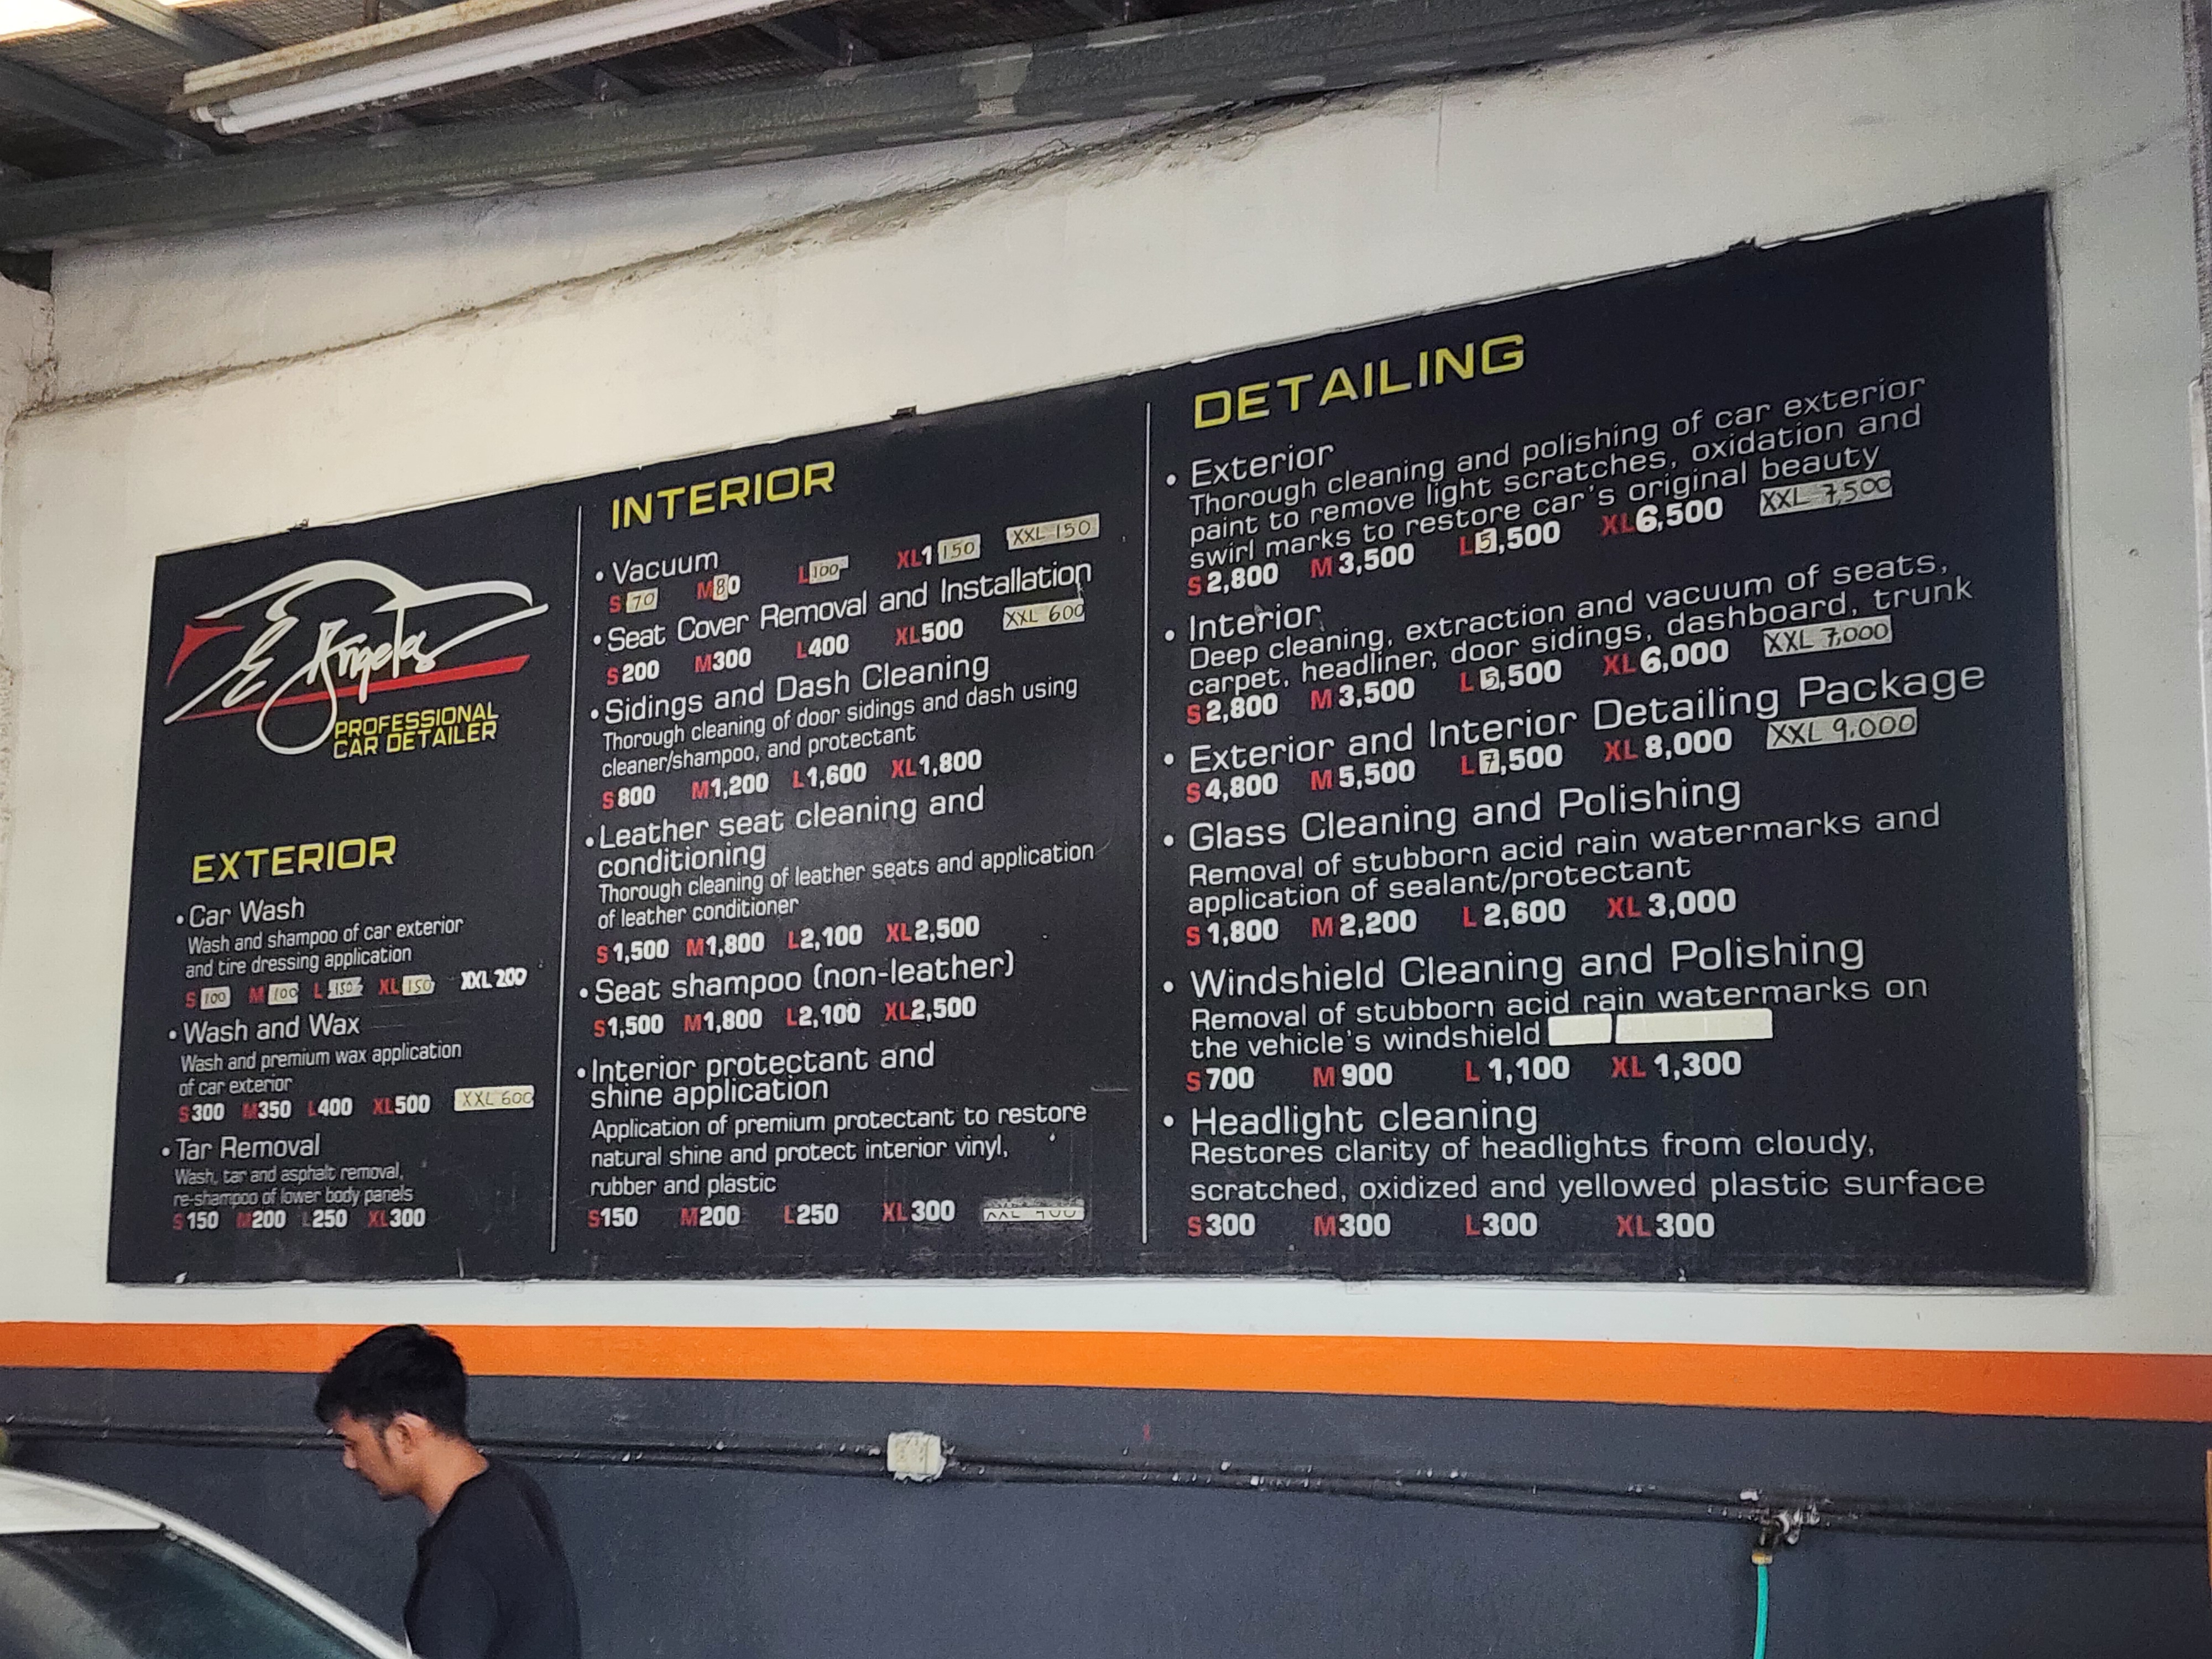 E Angeles
PROFESSIONAL
CAR DETAILER
EXTERIOR
• Car Wash
Wash and shampoo of car exterior
and tire dressing application
S 100 M 100 L 150 XL 150 XXL 200
• Wash and Wax
Wash and premium wax application
of car exterior
S 300 M 350 L 400 XL 500 XXL 600
• Tar Removal
Wash, tar and asphalt removal,
re-shampoo of lower body panels
S 150 M 200 L 250 XL 300
INTERIOR
• Vacuum
S 70 M 80 L 100 XL 1 150 XXL 150
• Seat Cover Removal and Installation
S 200 M 300 L 400 XL 500 XXL 600
• Sidings and Dash Cleaning
Thorough cleaning of door sidings and dash using
cleaner/shampoo, and protectant
S 800 M 1,200 L 1,600 XL 1,800
• Leather seat cleaning and
conditioning
Thorough cleaning of leather seats and application
of leather conditioner
S 1,500 M 1,800 L 2,100 XL 2,500
• Seat shampoo (non-leather)
S 1,500 M 1,800 L 2,100 XL 2,500
• Interior protectant and
shine application
Application of premium protectant to restore
natural shine and protect interior vinyl,
rubber and plastic
S 150 M 200 L 250 XL 300 XXL 400
DETAILING
• Exterior
Thorough cleaning and polishing of car exterior
paint to remove light scratches, oxidation and
swirl marks to restore car's original beauty
S 2,800 M 3,500 L 5,500 XL 6,500 XXL 7,500
• Interior
Deep cleaning, extraction and vacuum of seats,
carpet, headliner, door sidings, dashboard, trunk
S 2,800 M 3,500 L 5,500 XL 6,000 XXL 7,000
• Exterior and Interior Detailing Package
S 4,800 M 5,500 L 7,500 XL 8,000 XXL 9,000
• Glass Cleaning and Polishing
Removal of stubborn acid rain watermarks and
application of sealant/protectant
S 1,800 M 2,200 L 2,600 XL 3,000
• Windshield Cleaning and Polishing
Removal of stubborn acid rain watermarks on
the vehicle's windshield
S 700 M 900 L 1,100 XL 1,300
• Headlight cleaning
Restores clarity of headlights from cloudy,
scratched, oxidized and yellowed plastic surface
S 300 M 300 L 300 XL 300